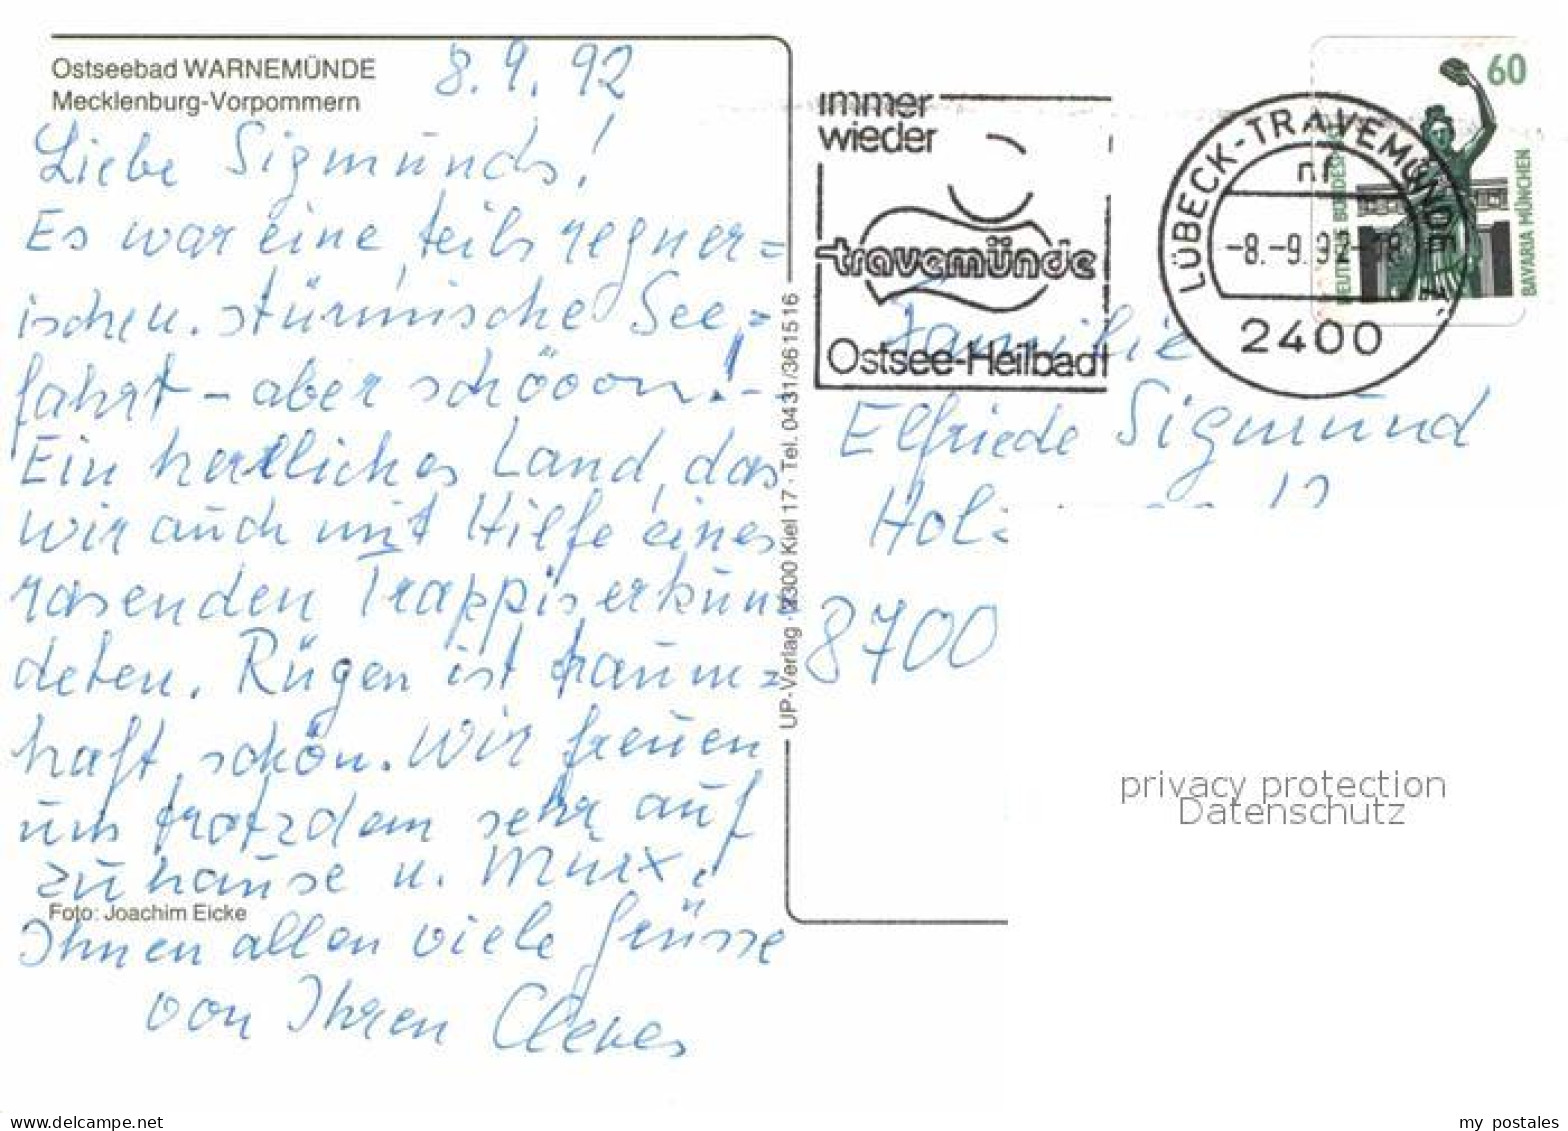 Ostseebad WARNEMÜNDE
Mecklenburg-Vorpommern
8.9.92
Liebe Sigmunds!
Es war eine, teils regner=
ischen. stürmische See=
fahrt - aber schööön! -
Ein herrliches Land, das
wir auch mit Hilfe eines
rasenden Trappis erkun
deten. Rügen ist traum=
haft schön. Wir freuen
uns trotzdem sehr auf
zuhause u. Murx.
Foto: Joachim Eicke
Ihnen allen viele Grüsse
von Ihren Cleves
UP-Verlag · 2300 Kiel 17 · Tel. 0431/361516
immer
wieder
travemünde
Ostsee-Heilbad!
LÜBECK-TRAVEMÜNDE 1
nf
-8.-9.92-18
2400
60
DEUTSCHE BUNDESPOST
BAVARIA MÜNCHEN
Familie
Elfriede Sigmund
8700
privacy protection
Datenschutz
my postales